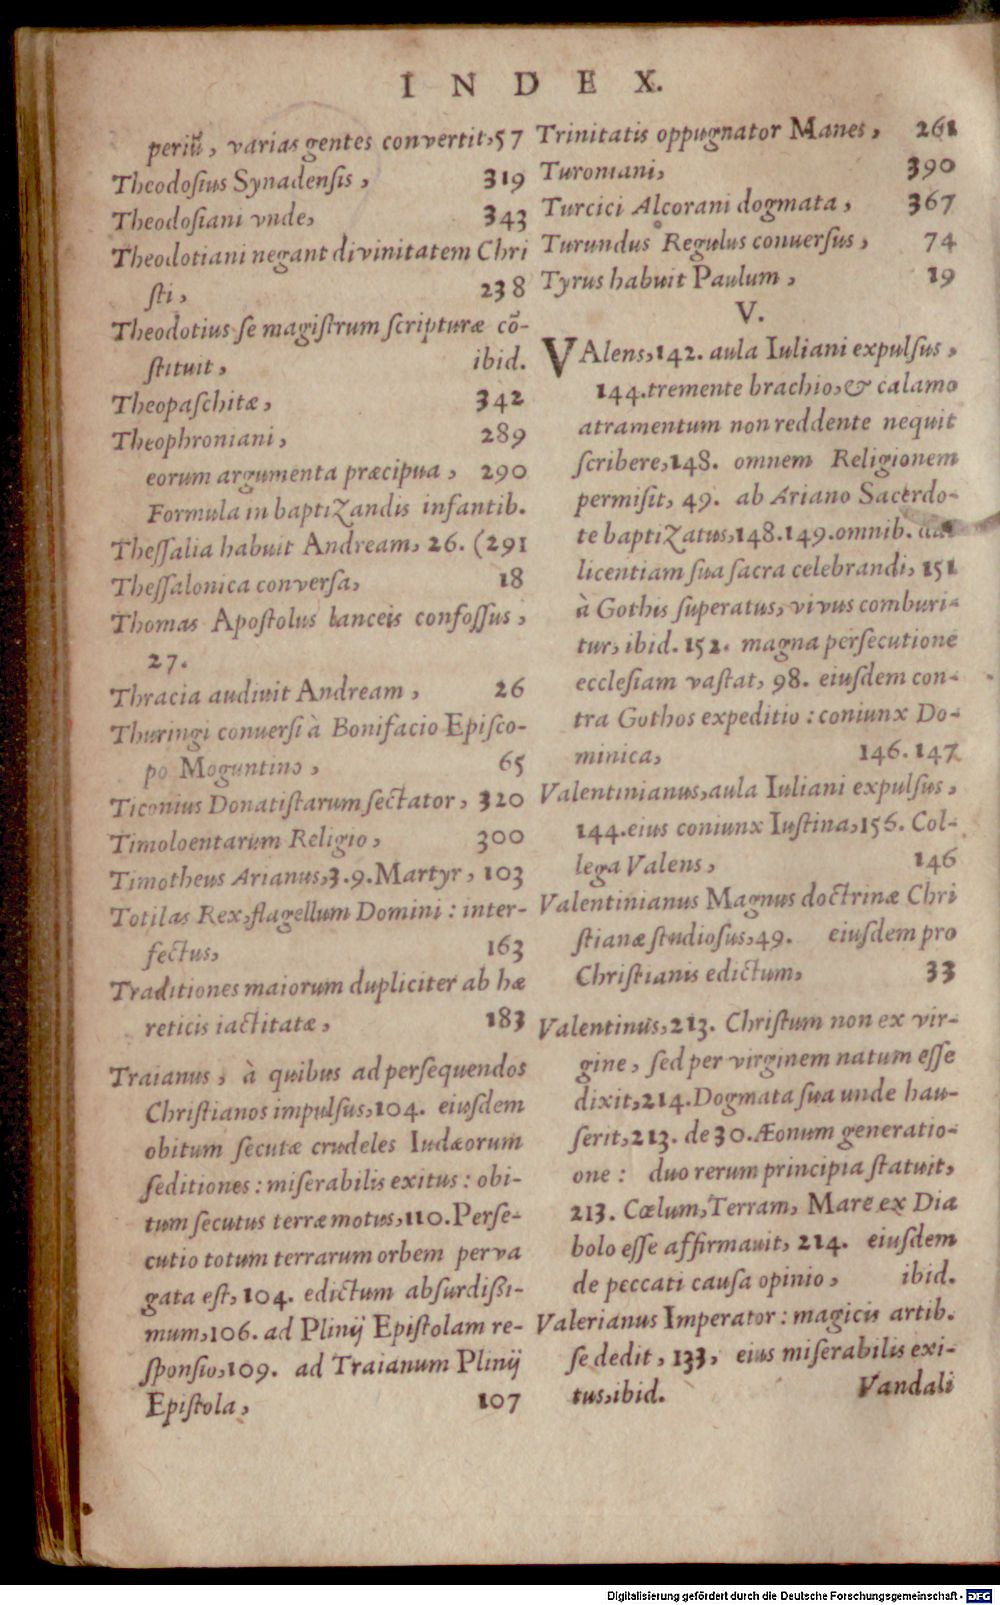 INDEX.
periũ, varias gentes convertit, 57
Theodoſius Synadenſis, 319
Theodoſiani vnde, 343
Theodotiani negant divinitatem Chri
ſti, 238
Theodotius ſe magiſtrum ſcripturæ cō-
ſtituit, ibid.
Theopaſchitæ, 342
Theophroniani, 289
eorum argumenta præcipua, 290
Formula in baptizandis infantib.
Theſſalia habuit Andream, 26. (291
Theſſalonica converſa, 18
Thomas Apoſtolus lanceis confoſſus,
27.
Thracia audiuit Andream, 26
Thuringi conuerſi à Bonifacio Epiſco-
po Moguntino, 65
Ticonius Donatiſtarum ſectator, 320
Timoloentarum Religio, 300
Timotheus Arianus, 3.9. Martyr, 103
Totilas Rex, flagellum Domini: inter-
fectus, 163
Traditiones maiorum dupliciter ab hæ
reticis iactitatæ, 183
Traianus, à quibus ad perſequendos
Chriſtianos impulſus, 104. eiuſdem
obitum ſecutæ crudeles Iudæorum
ſeditiones: miſerabilis exitus: obi-
tum ſecutus terræ motus, 110. Perſe-
cutio totum terrarum orbem perva
gata eſt, 104. edictum abſurdiſsi-
mum, 106. ad Plinij Epiſtolam re-
ſponſio, 109. ad Traianum Plinij
Epiſtola, 107
Trinitatis oppugnator Manes, 261
Turoniani, 390
Turcici Alcorani dogmata, 367
Turundus Regulus conuerſus, 74
Tyrus habuit Paulum, 19
V.
VAlens, 142. aula Iuliani expulſus,
144. tremente brachio, & calamo
atramentum non reddente nequit
ſcribere, 148. omnem Religionem
permiſit, 49. ab Ariano Sacerdo-
te baptizatus, 148.149. omnib. dat
licentiam ſua ſacra celebrandi, 151
à Gothis ſuperatus, vivus comburi-
tur, ibid. 152. magna perſecutione
eccleſiam vaſtat, 98. eiuſdem con-
tra Gothos expeditio: coniunx Do-
minica, 146. 147
Valentinianus, aula Iuliani expulſus,
144. eius coniunx Iuſtina, 156. Col-
lega Valens, 146
Valentinianus Magnus doctrinæ Chri
ſtianæ ſtudioſus, 49. eiuſdem pro
Chriſtianis edictum, 33
Valentinus, 213. Chriſtum non ex vir-
gine, ſed per virginem natum eſſe
dixit, 214. Dogmata ſua unde hau-
ſerit, 213. de 30. Æonum generatio-
one: duo rerum principia ſtatuit,
213. Cœlum, Terram, Mare ex Dia
bolo eſſe affirmauit, 214. eiuſdem
de peccati cauſa opinio, ibid.
Valerianus Imperator: magicis artib.
ſe dedit, 133, eius miſerabilis exi-
tus, ibid. Vandali
Digitalisierung gefördert durch die Deutsche Forschungsgemeinschaft - DFG